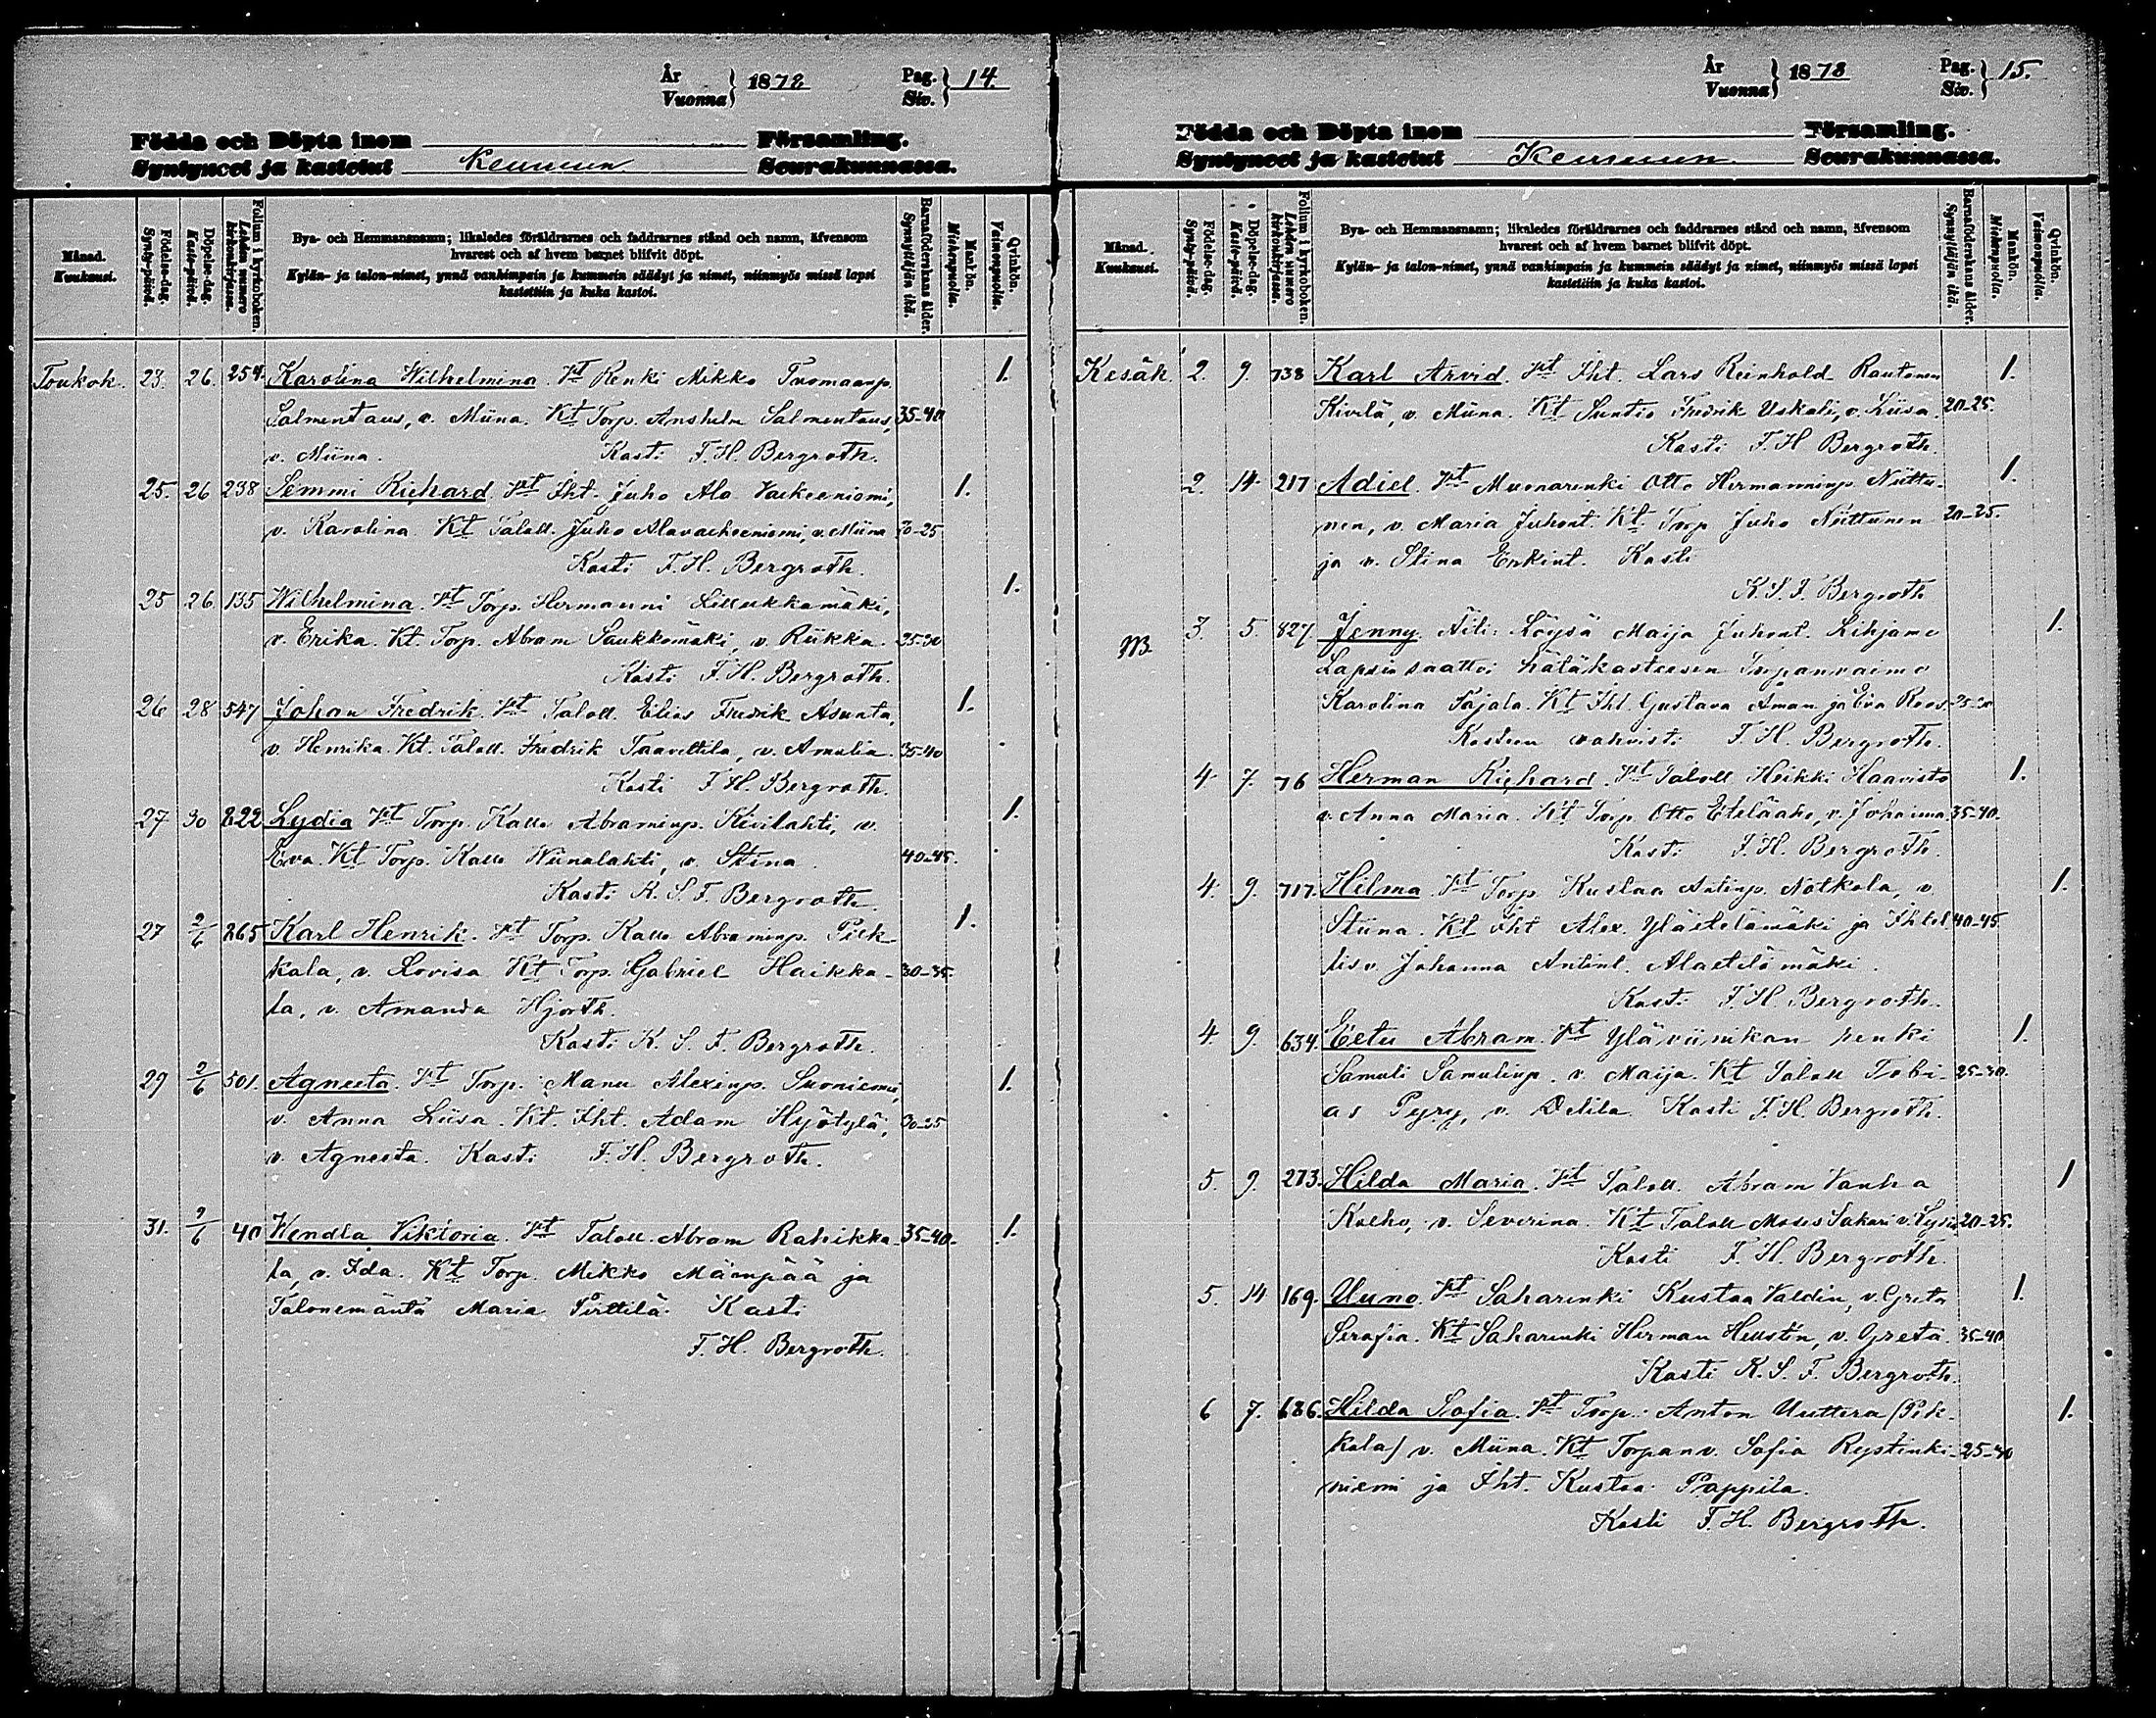 År
Vuonna } 1878 Pag.
Siv. } 14.
Födda och Döpta inom Församling.
Syntyneet ja kastetut Seurakunnassa.
Månad.
Kuukausi.
Födelse-dag.
Synty-päivä.
Döpelse-dag.
Kaste-päivä.
Folium i kyrkoboken.
Lehden numero kirkonkirjassa.
Bya- och Hemmansnamn; likaledes föräldrarnes och faddrarnes stånd och namn, äfvensom
hvarest och af hvem barnet blifvit döpt.
Kylän- ja talon-nimet, ynnä vanhimpain ja kummein säädyt ja nimet, niinmyös missä lapsi
kastettiin ja kuka kastoi.
Barnaföderskans ålder.
Synnyttäjän ikä.
Mankön.
Miehenpuolia.
Qvinkön.
Vaimonpuolia.
Toukok. 23. 26. 254. Karolina Wilhelmina. Vt Renki Mikko Tuomaanp. 1.
Salmentaus, v. Miina. Kt Torp. Anshelm Salmentaus, 35-40
v. Miina. Kasti F. H. Bergroth.
25. 26 238 Semmi Richard. Vt Iht. Juho Ala Vackeeniemi, 1.
v. Karolina. Kt Taloll. Juho Alavackeeniemi, v. Miina 30-25
Kasti F. H. Bergroth.
25 26 135 Wilhelmina. Vt Torp. Hermanni 1.
v. Erika. Kt. Torp. Abram Saukkomäki, v. Riikka. 25-30
Kasti F. H. Bergroth.
26 28 547 Johan Fredrik. Vt Taloll. Elias Fredrik Asunta, 1.
v. Henrika. Kt. Taloll. Fredrik Taavettila, v. Amalia. 35-40
Kasti F. H. Bergroth.
27 30 822 Lydia Vt Torp. Kalle Abraminp. Kivilahti, v. 1.
Eva. Kt Torp. Kalle Niinalahti, v. Stina 40-45.
Kasti K. S. F. Bergroth.
27 2/6 865 Karl Henrik. Vt Torp. Kalle Abraminp. Piek- 1.
kala, v. Lovisa Kt Torp. Gabriel Haikka- 30-35
la, v. Amanda Hjorth.
Kasti K. S. F. Bergroth.
29 2/6 501. Agneeta. Vt Torp. Manu Alexinp. Suoniemi, 1.
v. Anna Liisa. Kt. Iht. Adam Hyötylä, 30-25
v. Agneeta. Kasti F. H. Bergroth.
31. 9/6 40 Wendla Viktoria. Vt Taloll. Abram Rahikka- 35-40. 1.
la, v. Ida. Kt Torp. Mikko Mämpää ja
Talonemäntä Maria Pirttilä. Kasti
F. H. Bergroth.
År
Vuonna } 1878 Pag.
Siv. } 15.
Födda och Döpta inom Församling.
Syntyneet ja kastetut Seurakunnassa.
Månad.
Kuukausi.
Födelse-dag.
Synty-päivä.
Döpelse-dag.
Kaste-päivä.
Folium i kyrkoboken.
Lehden numero kirkonkirjassa.
Bya- och Hemmansnamn; likaledes föräldrarnes och faddrarnes stånd och namn, äfvensom
hvarest och af hvem barnet blifvit döpt.
Kylän- ja talon-nimet, ynnä vanhimpain ja kummein säädyt ja nimet, niinmyös missä lapsi
kastettiin ja kuka kastoi.
Barnaföderskans ålder.
Synnyttäjän ikä.
Mankön.
Miehenpuolia.
Qvinkön.
Vaimonpuolia.
Kesäk. 2. 9. 738 Karl Arvid. Vt Iht. Lars Reinhold Rautanen 1.
Kivelä, v. Miina. Kt Suntio Fredrik Uskali, v. Liisa. 20-25.
Kasti F. H Bergroth.
2. 14 217 Adiel. Vt Muonarenki Otto Hermanninp. Niittu- 1.
nen, v. Maria Juhont. Kt. Torp Juho Niittunen 20-25.
ja v. Stina Erkint. Kasti
K. S. F. Bergroth
3. 5. 827. Jenny. Äiti: Löysä Maija Juhont. Lihjamo 1.
Lapsi saattoi hätäkasteesen Torpanvaimo
Karolina Pajala. Kt Iht. Gustava Åman ja Eva Roos. 25-30
Kasteen vahvisti F. H. Bergroth.
4. 7. 76 Herman Richard. Vt Taloll Heikki Haavisto 1.
v. Anna Maria. Kt Torp. Otto Eteläaho, v. Johanna 35-40.
Kasti F. H. Bergroth.
4. 9. 717. Hilma. Vt Torp. Kustaa Antinp. Notkola, v. 1.
Stiina. Kt Iht Alex. Yläetelämäki ja Ihtel. 40-45
lis v. Johanna Antint. Alaetelämäki.
Kasti F. H. Bergroth.
4. 9. 634. Eetu Abram. Vt Yläviinikan renki 1.
Samuli Samulinp. v. Maija. Kt Taloll Tobi- 25-30.
as Pyry, v. Delila. Kasti F. H. Bergroth.
5. 9. 273. Hilda Maria. Vt Taloll. Abram Vanha 1
Kaeho, v. Severina. Kt Taloll Moses Sakari v. Lydia 20-25.
Kasti F. H. Bergroth.
5. 14 169. Uuno. Vt Saharenki Kustaa Valdin, v. Greta 1.
Serafia. Kt Saharenki Herman Hellstén, v. Greta. 35-40
Kasti K. S. F. Bergroth.
6 7. 686. Hilda Sofia. Vt Torp. Anton Uuttera (Pik- 1.
kala) v. Miina. Kt Torpanv. Sofia Rystinki- 25-30
niemi ja Iht. Kustaa Pappila.
Kasti F. H. Bergroth.